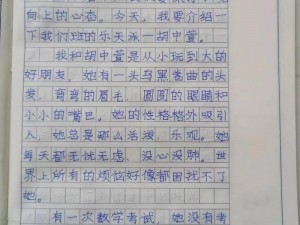 向上的心态。今天，我要介绍一
下我们班的乐天派—胡中萱。
我和胡中萱是从小玩到大的
好朋友。她有一头乌黑卷曲的头
发，弯弯的眉毛，圆圆的眼睛和
小小的嘴巴。她的性格格外吸引
人。她总是那么活泼、乐观。她
每天都无忧无虑、没心没肺。世
界上所有的烦恼好像都困扰不了
她。
有一次数学考试，她没有考